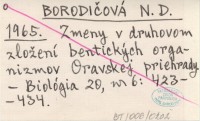 BORODIČOVÁ N. D.
1965. Zmeny v druhovom
zložení bentických orga-
nizmov Oravskej priehrady
- Biológia 20, nº 6: 423-
-434.